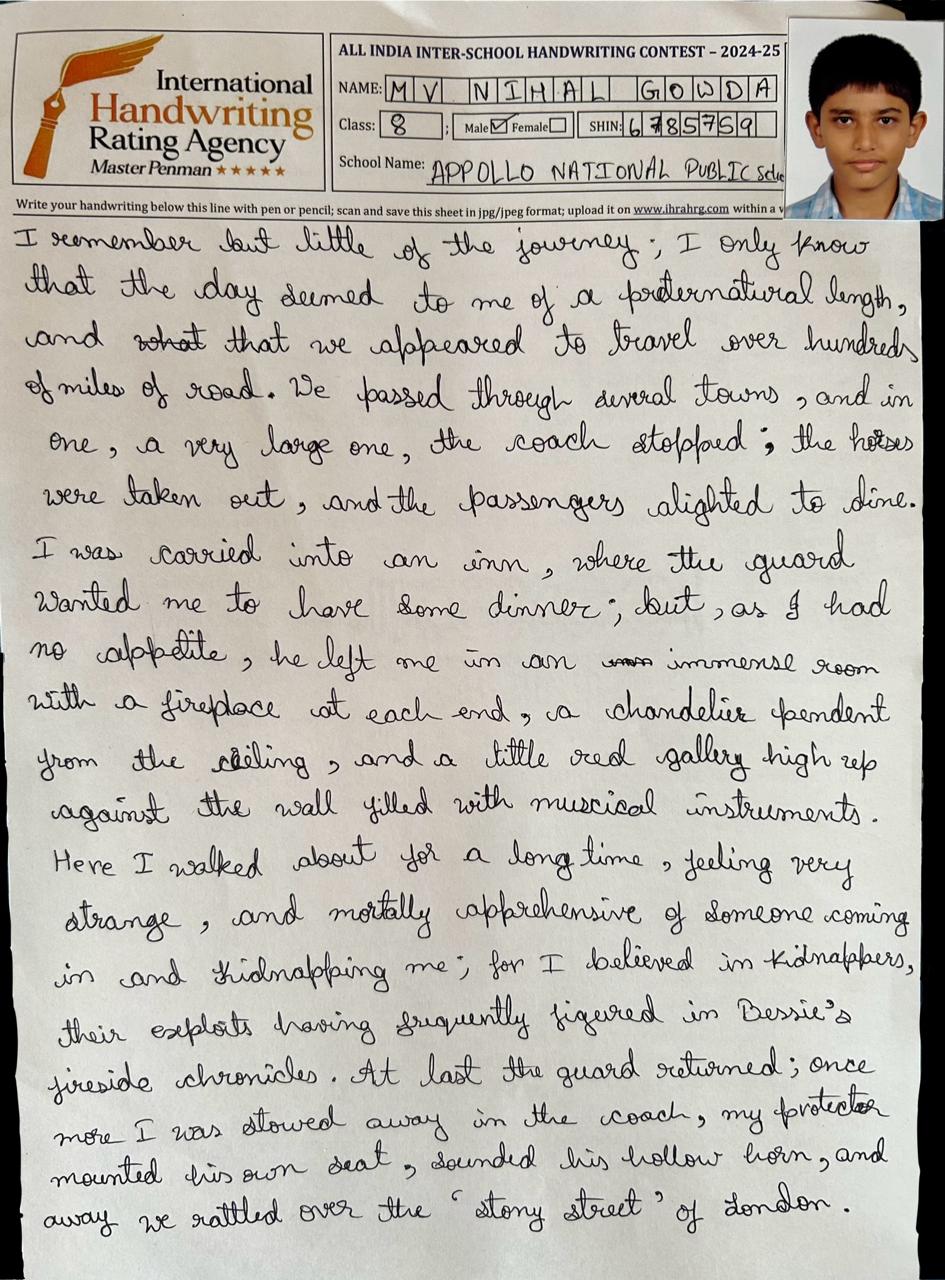 International
Handwriting
Rating Agency
Master Penman ★★★★★
ALL INDIA INTER-SCHOOL HANDWRITING CONTEST – 2024-25
NAME: M V NIHAL GOWDA
Class: 8 ; Male ☑ Female ☐ SHIN: 6785759
School Name: APPOLLO NATIONAL PUBLIC
Write your handwriting below this line with pen or pencil; scan and save this sheet in jpg/jpeg format; upload it on www.ihrahrg.com within a
I remember but little of the journey; I only know
that the day seemed to me of a preternatural length,
and what that we appeared to travel over hundreds
of miles of road. We passed through several towns, and in
one, a very large one, the coach stopped; the horses
were taken out, and the passengers alighted to dine.
I was carried into an inn, where the guard
wanted me to have some dinner; but, as I had
no appetite, he left me in an immense room
with a fireplace at each end, a chandelier pendent
from the ceiling, and a little red gallery high up
against the wall filled with muscical instruments.
Here I walked about for a long time, feeling very
strange, and mortally apprehensive of someone coming
in and kidnapping me; for I believed in kidnappers,
their exploits having frequently figured in Bessie's
fireside chronicles. At last the guard returned; once
more I was stowed away in the coach, my protector
mounted his own seat, sounded his hollow horn, and
away we rattled over the 'stony street' of London.